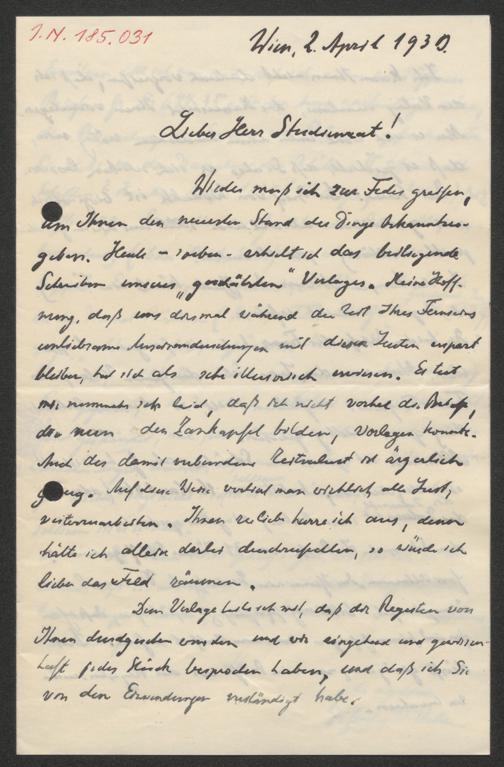 I.N. 185.031
Wien, 2. April 1930.
Lieber Herr Studienrat!
Wieder muß ich zur Feder greifen,
um Ihnen den neuesten Stand der Dinge bekanntzu-
geben. Heute – soeben – erhielt ich das beiliegende
Schreiben unseres „geschätzten“ Verlages. Meine Hoff-
nung, daß uns diesmal während der Zeit Ihres Fernseins
unliebsame Auseinandersetzungen mit diesen Leuten erspart
bleiben, hat sich als sehr illusorisch erwiesen. Es tut
mir nunmehr sehr leid, daß ich nicht vorher die Briefe,
die nun den Zankapfel bilden, vorlegen konnte.
Und der damit verbundene Zeitverlust ist ärgerlich
genug. Auf diese Weise verliert man wirklich alle Lust,
weiterzuarbeiten. Ihnen zu Liebe harre ich aus, denn
hätte ich allein derlei durchzufechten, so würde ich
lieber das Feld räumen.
Dem Verlage teile ich mit, daß die Regesten von
Ihnen durchgesehen wurden und wir eingehend und gewissen-
haft jedes Stück besprochen haben, und daß ich Sie
von den Einwendungen verständigt habe.